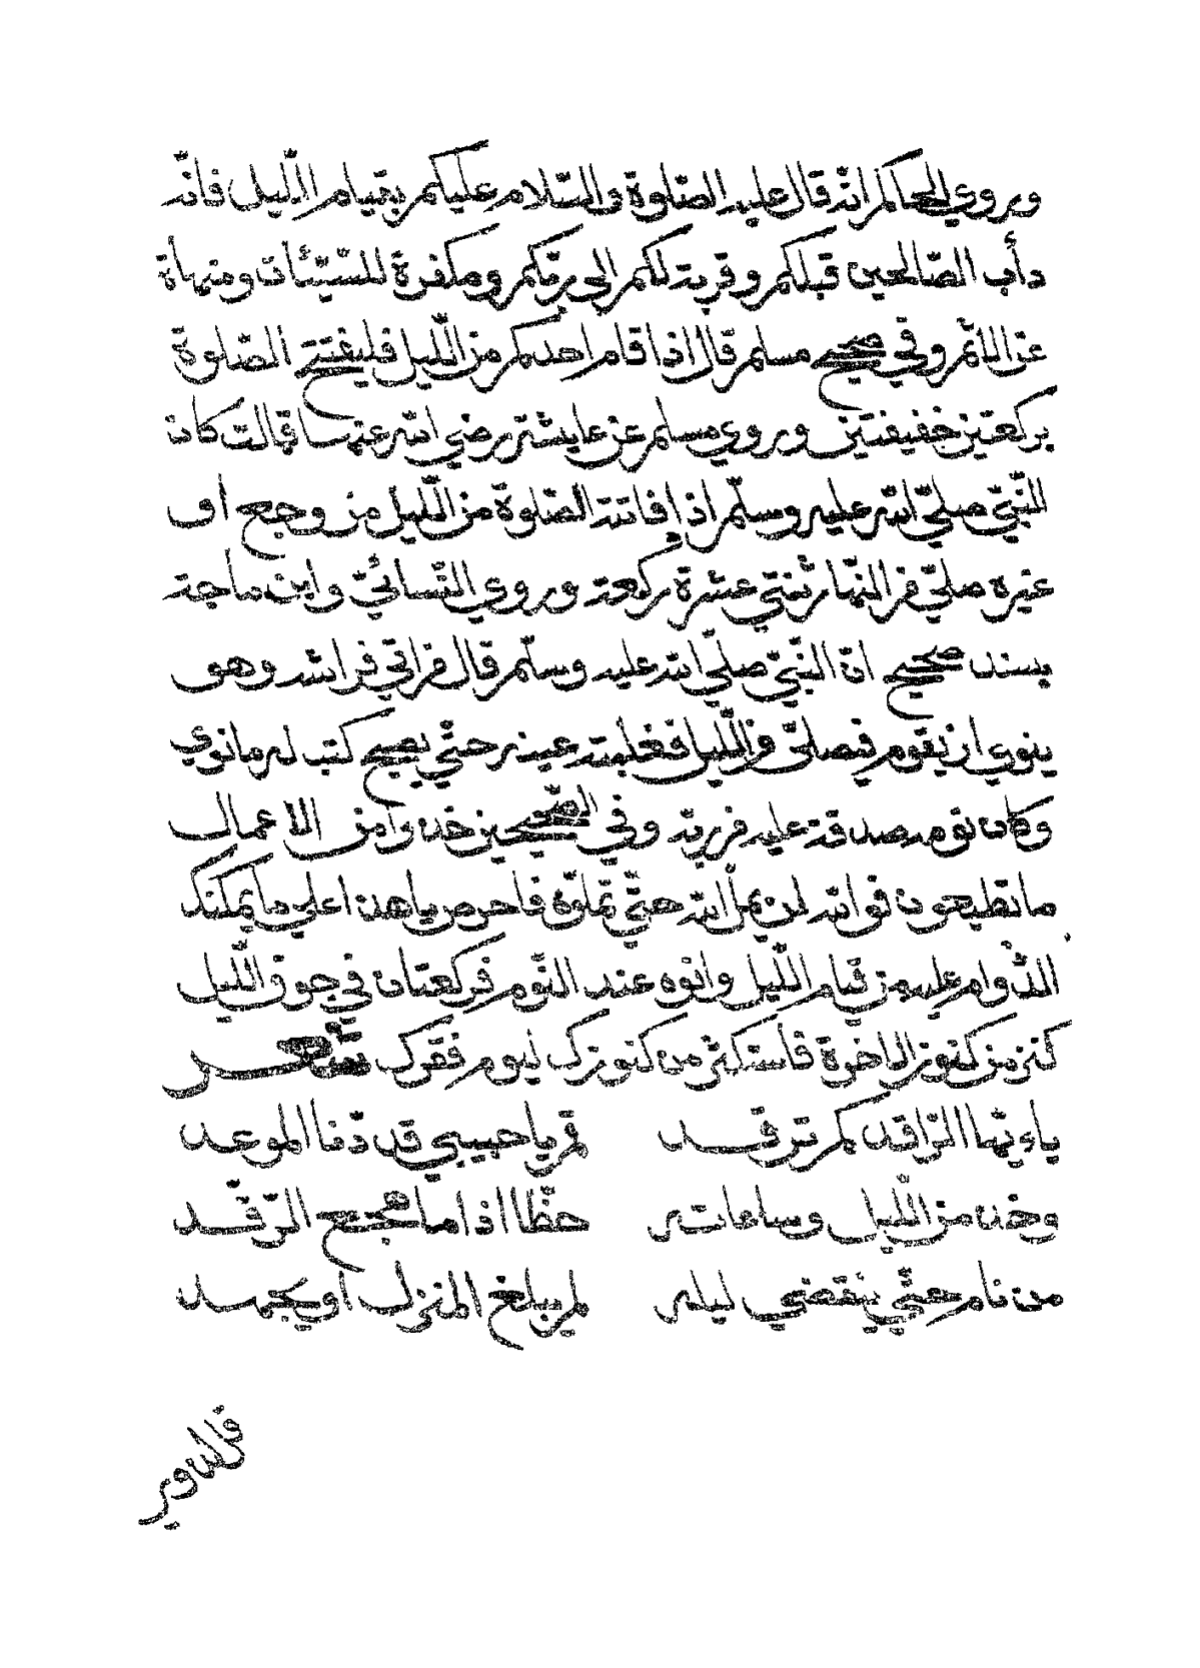 وروي الحاكم انّه قال عليه الصّلوة والسّلام عليكم بقيام اللّيل فانّه
دأب الصّالحين قبلكم وقربة لكم الى ربّكم ومكفرة للسّيّئات ومنهاة
عن الاثم وفي صحيح مسلم قال اذا قام احدكم من اللّيل فليفتتح الصّلوة
بركعتين خفيفتين وروي مسلم عن عايشة رضي الله عنها قالت كان
النّبيّ صلّي الله عليه وسلّم اذا فاتته الصّلوة من اللّيل من وجع او
غيره صلّي من النّهار ثنتي عشرة ركعة وروي النّسائيّ وابن ماجة
بسند صحيح انّ النّبيّ صلّي الله عليه وسلّم قال من اتي فراشه وهو
ينوي ان يقوم فيصلّي من اللّيل فغلبته عينه حتّي يصبح كتب له ما نوي
وكان نومه صدقة عليه من ربّه وفي الصّحيحين خذوا من الاعمال
ما تطيعون فوالله لن يملّ الله حتّي تملّوا فاحرص ياهذا علي ما يمكنك
الدّوام عليه من قيام اللّيل وانوه عند النّوم فركعتان في جوف اللّيل
كنز من كنوز الاخرة فاستكثر من كنوزك ليوم فقرك شعر
ياءيّها الرّاقد كم ترقد قم يا حبيبي قد دنا الموعد
وخذ من اللّيل وساعاته حظّا اذا ما هجع الرّقّد
من نام حتّي ينقضي ليله لم يبلغ المنزل او يجهد